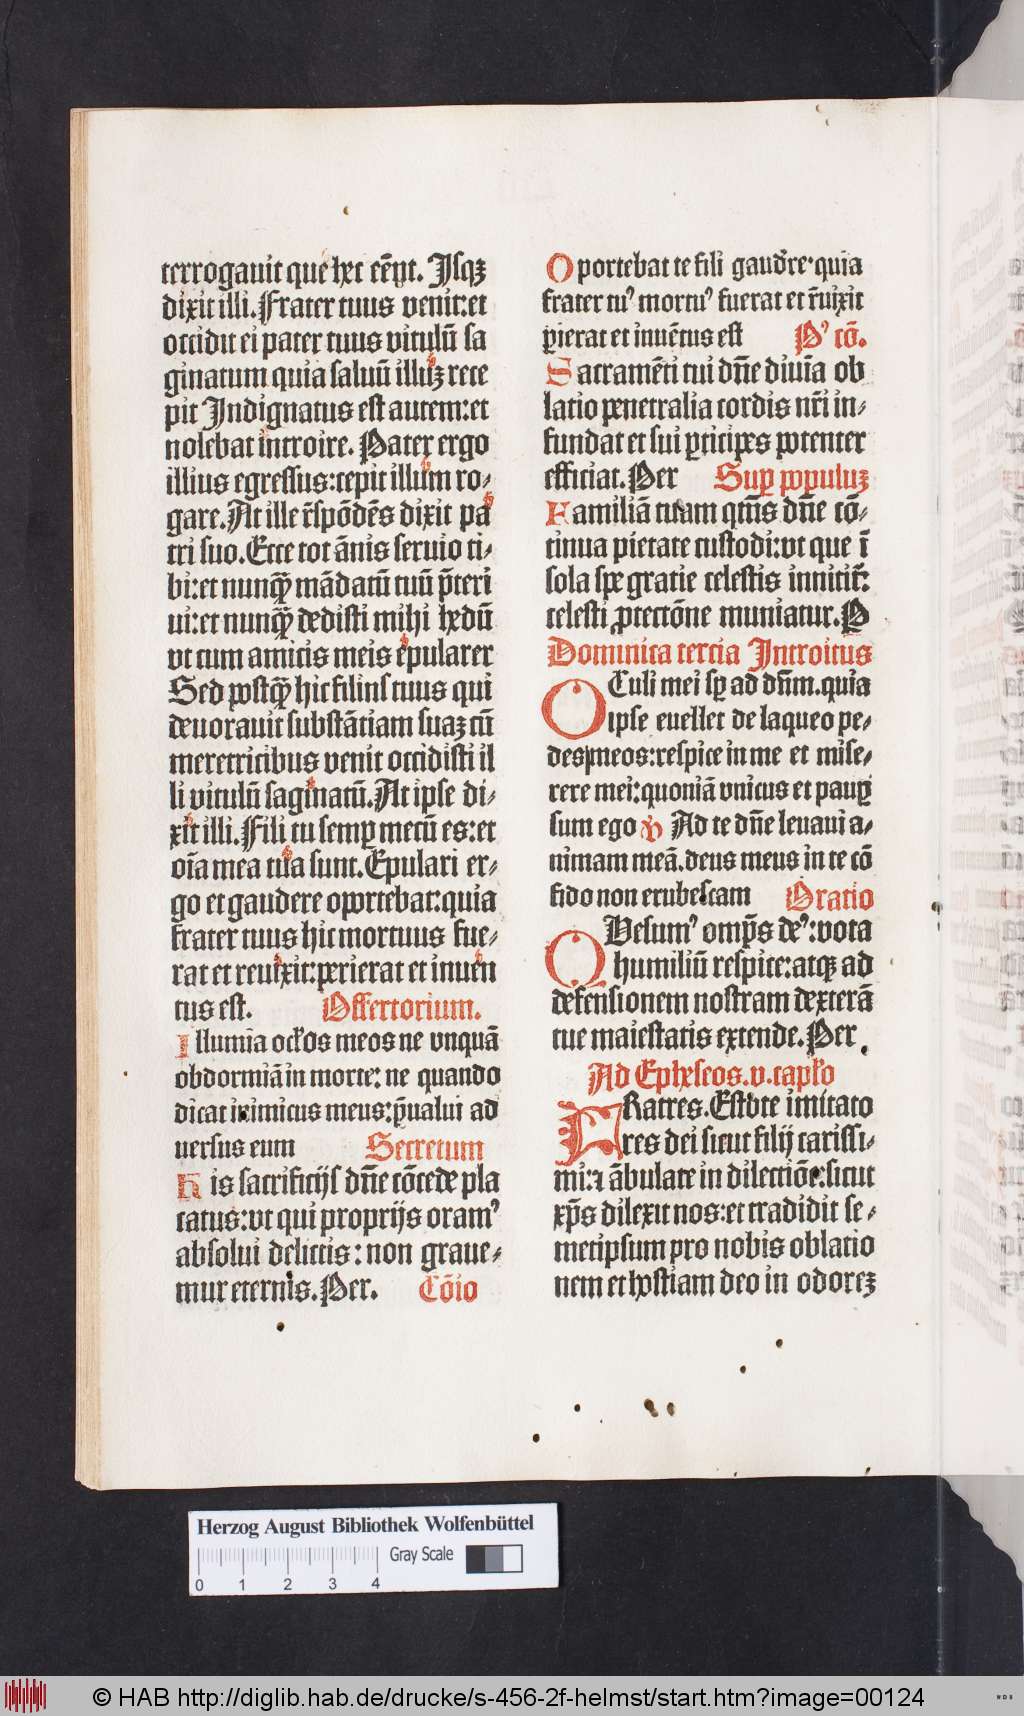 terrogauit que hec eēnt. Isqꝫ
dixit illi. Frater tuus venit: et
occidit ei pater tuus vitulū sa
ginatum quia saluū illuꝫ rece
pit Indignatus est autem: et
nolebat introire. Pater ergo
illius egressus: cepit illum ro⸗
gare. At ille r̄spōdēs dixit pa
tri suo. Ecce tot ānis seruio ti⸗
bi: et nunqꝫ mādatū tuū p̄teri
ui: et nunqꝫ dedisti mihi hedū
vt cum amicis meis epularer
Sed postqꝫ hic filius tuus qui
deuorauit substātiam suaꝫ cū
meretricibus venit occidisti il
li vitulū saginatū. At ipse di⸗
xit illi. Fili tu semꝑ mecū es: et
oīa mea tua sunt. Epulari er⸗
go et gaudere oportebat: quia
frater tuus hic mortuus fue⸗
rat et reuixit: perierat et inuen
tus est. Offertorium.
Illumīa oclōs meos ne vnquā
obdormiā in morte: ne quando
dicat inimicus meus: p̄ualui ad
uersus eum Secretum
His sacrificijs dn̄e cōcede pla
catus: vt qui proprijs oramꝰ
absolui delictis: non graue⸗
mur eternis. Per. Cōio
Oportebat te fili gaud̄re. quia
frater tuꝰ mortuꝰ fuerat et r̄uixit
ꝑierat et inuētus est Pꝰ cō.
Sacramēti tui dn̄e diuīa ob
latio penetralia cordis nr̄i in⸗
fundat et sui ꝑticipes potenter
efficiat. Per Suꝑ populuꝫ
Familiā tuam qm̄s dn̄e cō⸗
tinua pietate custodi: vt que ī
sola spe gratie celestis innitit̄:
celesti ꝓtectōne muniatur. P
Dominica tercia Introitus
OCuli mei sꝑ ad dn̄m. quia
ipse euellet de laqueo pe⸗
des meos: respice in me et mise⸗
rere mei: quoniā vnicus et pauꝑ
sum ego v Ad te dn̄e leuaui a⸗
nimam meā. deus meus in te cō
fido non erubescam Oratio
QVesumꝰ omp̄s deꝰ: vota
humiliū respice: atqꝫ ad
defensionem nostram dexterā
tue maiestatis extende. Per
Ad Epheseos. v. caplo
FRatres. Estote imitato
res dei sicut filij carissi⸗
mi: ⁊ ābulate in dilectiōe: sicut
xp̄s dilexit nos: et tradidit se⸗
metipsum pro nobis oblatio
nem et hostiam deo in odoreꝫ
Herzog August Bibliothek Wolfenbüttel
Gray Scale
0 1 2 3 4
© HAB http://diglib.hab.de/drucke/s-456-2f-helmst/start.htm?image=00124